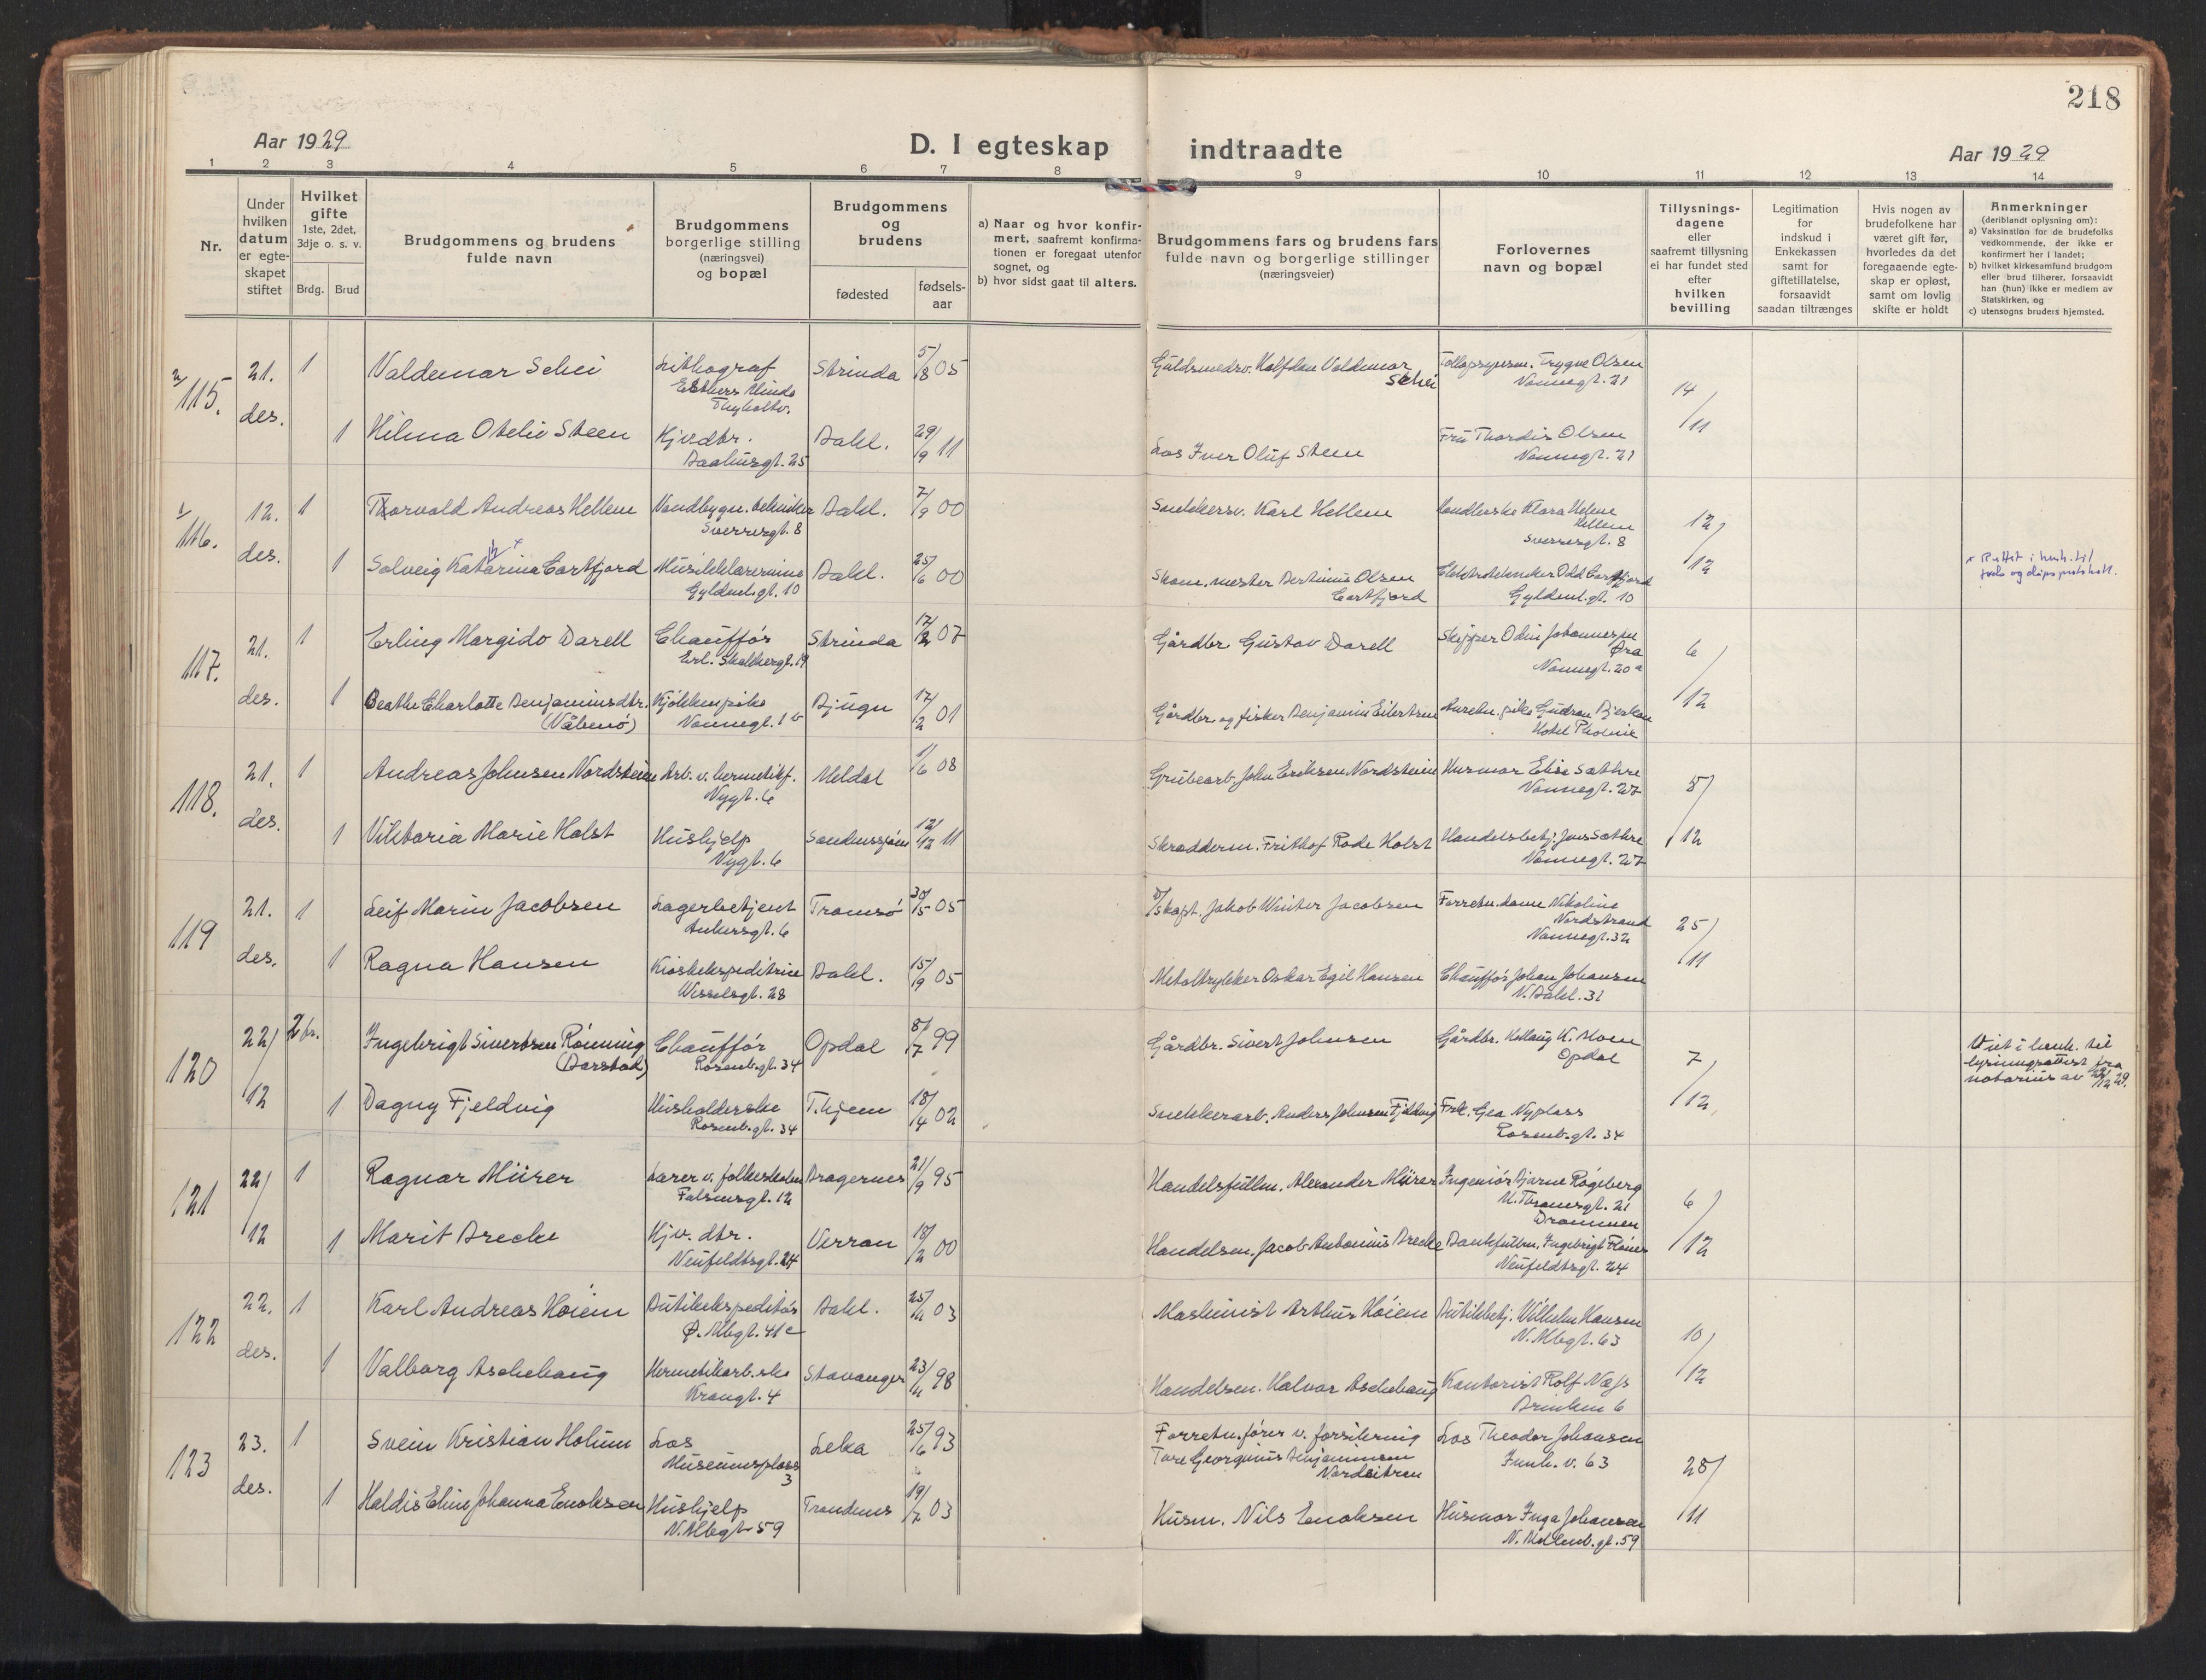 218
Aar 1929
D. I egteskap indtraadte
Aar 1929
1 2 3 4 5 6 7 8 9 10 11 12 13 14
Nr.
Under hvilken datum er egte-skapet stiftet
Hvilket gifte 1ste, 2det, 3dje o. s. v.
Brdg. Brud
Brudgommens og brudens fulde navn
Brudgommens borgerlige stilling (næringsvei) og bopæl
Brudgommens og brudens
fødested
fødsels-aar
a) Naar og hvor konfir-mert, saafremt konfirma-tionen er foregaat utenfor sognet, og
b) hvor sidst gaat til alters.
Brudgommens fars og brudens fars fulde navn og borgerlige stillinger (næringsveier)
Forlovernes navn og bopæl
Tillysnings-dagene eller saafremt tillysning ei har fundet sted efter hvilken bevilling
Legitimation for indskud i Enkekassen samt for giftetillatelse, forsaavidt saadan tiltrænges
Hvis nogen av brudefolkene har været gift før, hvorledes da det foregaaende egte-skap er opløst, samt om lovlig skifte er holdt
Anmerkninger (deriblandt oplysning om):
a) Vaksination for de brudefolks vedkommende, der ikke er konfirmert her i landet;
b) hvilket kirkesamfund brudgom eller brud tilhører, forsaavidt han (hun) ikke er medlem av Statskirken, og
c) utensogns bruders hjemsted.
115. 21. des. 1 Valdemar Schei Lithograf Strinda 5/8 05 Guldsmedsv. Halfdan Valdemar Schei Trygve Olsen Nonnegt. 21 14/11
1 Hilma Otelie Steen Kjvdtr. Aahusgt. 25 Bakl. 29/9 11 Los Iver Oluf Steen Fru Thordis Olsen Nonnegt. 21
116. 12. des. 1 Thorvald Andreas Hellem Vandbygn. tekniker Sverresgt. 8 Bakl. 7/9 00 Snekkersv. Karl Hellem Handlerske Klara Helene Hellem Sverresgt. 8 12/12
1 Solveig Katarina Cartfjord Musiklærerinne Gyldenl. gt. 10 Bakl. 25/6 00 Skom. mester Bertinus Olsen Cartfjord Elektrotekniker Odd Cartfjord Gyldenl. gt. 10
x Rettet i henh. til dåpsprotokoll.
117. 21. des. 1 Erling Margido Darell Chauffør Erl. Skakkesgt. 19 Strinda 17/2 07 Gårdbr. Gustav Darell Skipper Odin Johannesen Øra Nonnegt. 20a 6/12
1 Beathe Charlotte Benjaminsdtr. (Våbenø) Kjøkkenpike Nonnegt. 1b Bjugn 17/2 01 Gårdbr. og fisker Benjamin Eilertsen Gudrun Hotel Phoenix
118. 21. des. 1 Andreas Johnsen Nordstein Arb. v. hermetikf. Nygt. 6 Meldal 1/6 08 Grubearb. John Eriksen Nordstein Husmor Elise Sæthre Nonnegt. 27 5/12
1 Viktoria Marie Holst Hushjelp Nygt. 6 Sandnessjøen 12/12 11 Skredderm. Frithof Rode Holst Handelsbetj. Jens Sæthre Nonnegt. 27
119 21. des. 1 Leif Marin Jacobsen Lagerbetjent Ankersgt. 6 Tromsø 30/5 05 D/skapt. Jakob Winter Jacobsen Forretn. dame Nikoline Nordstrand Nonnegt. 32 25/11
1 Ragna Hansen Kioskekspeditrice Wesselsgt. 28 Bakl. 15/9 05 Metaltrykker Oskar Egil Hansen Chauffør Johan Johansen N. Bakl. 31
120 22/12 2 fr. Ingebrigt Sivertsen Rønning (Aarstad) Chauffør Rosenb. gt. 34 Opdal 8/7 99 Gårdbr. Sivert Johnsen Gårdbr. K. Moen Opdal 7/12
1 Dagny Fjeldvig Husholderske Rosenb. gt. 34 T.hjem 18/4 02 Snekkerarb. Anders Johnsen Fjeldvig Frk. Gea Nyplass Rosenb. gt. 34
Viet i henh. til lysningsattest fra notarius av 22/12 29.
121 22/12 1 Ragnar Mürer Lærer v. folkeskolen Falsensgt. 12 Bragernes 21/9 95 Handelsfullm. Alexander Mürer Ingeniør Bjarne Røgeberg Drammen 6/12
1 Marit Brecke Kjv. dtr. Neufeldtsgt. 24 Verran 18/2 00 Handelsm. Jacob Antonius Brecke Bankfullm. Ingebrigt Neufeldtsgt. 24
122 22. des. 1 Karl Andreas Høiem Butikekspeditør Ø. Mbgt. 41c Bakl. 25/4 03 Maskinist Arthur Høiem Butikkbetj. Wilhelm Hansen N. Mbgt. 63 10/12
1 Valborg Aschehaug Hermetikarb.ske Krangt. 4 Stavanger 23/4 98 Handelsm. Halvor Aschehaug Kontorist Rolf Næss Brinken 6
123 23. des. 1 Svein Kristian Holum Los Museumsplass 3 Leka 25/6 93 Forretn.fører v. forsikring Tore Georginius Benjaminsen Los Theodor Johansen Innh. v. 63 28/11
1 Haldis Eline Johanna Enoksen Hushjelp N. Mbgt 59 Trondenes 19/7 03 Husm. Nils Enoksen Husmor Inga Johansen N. Møllenb. gt. 59